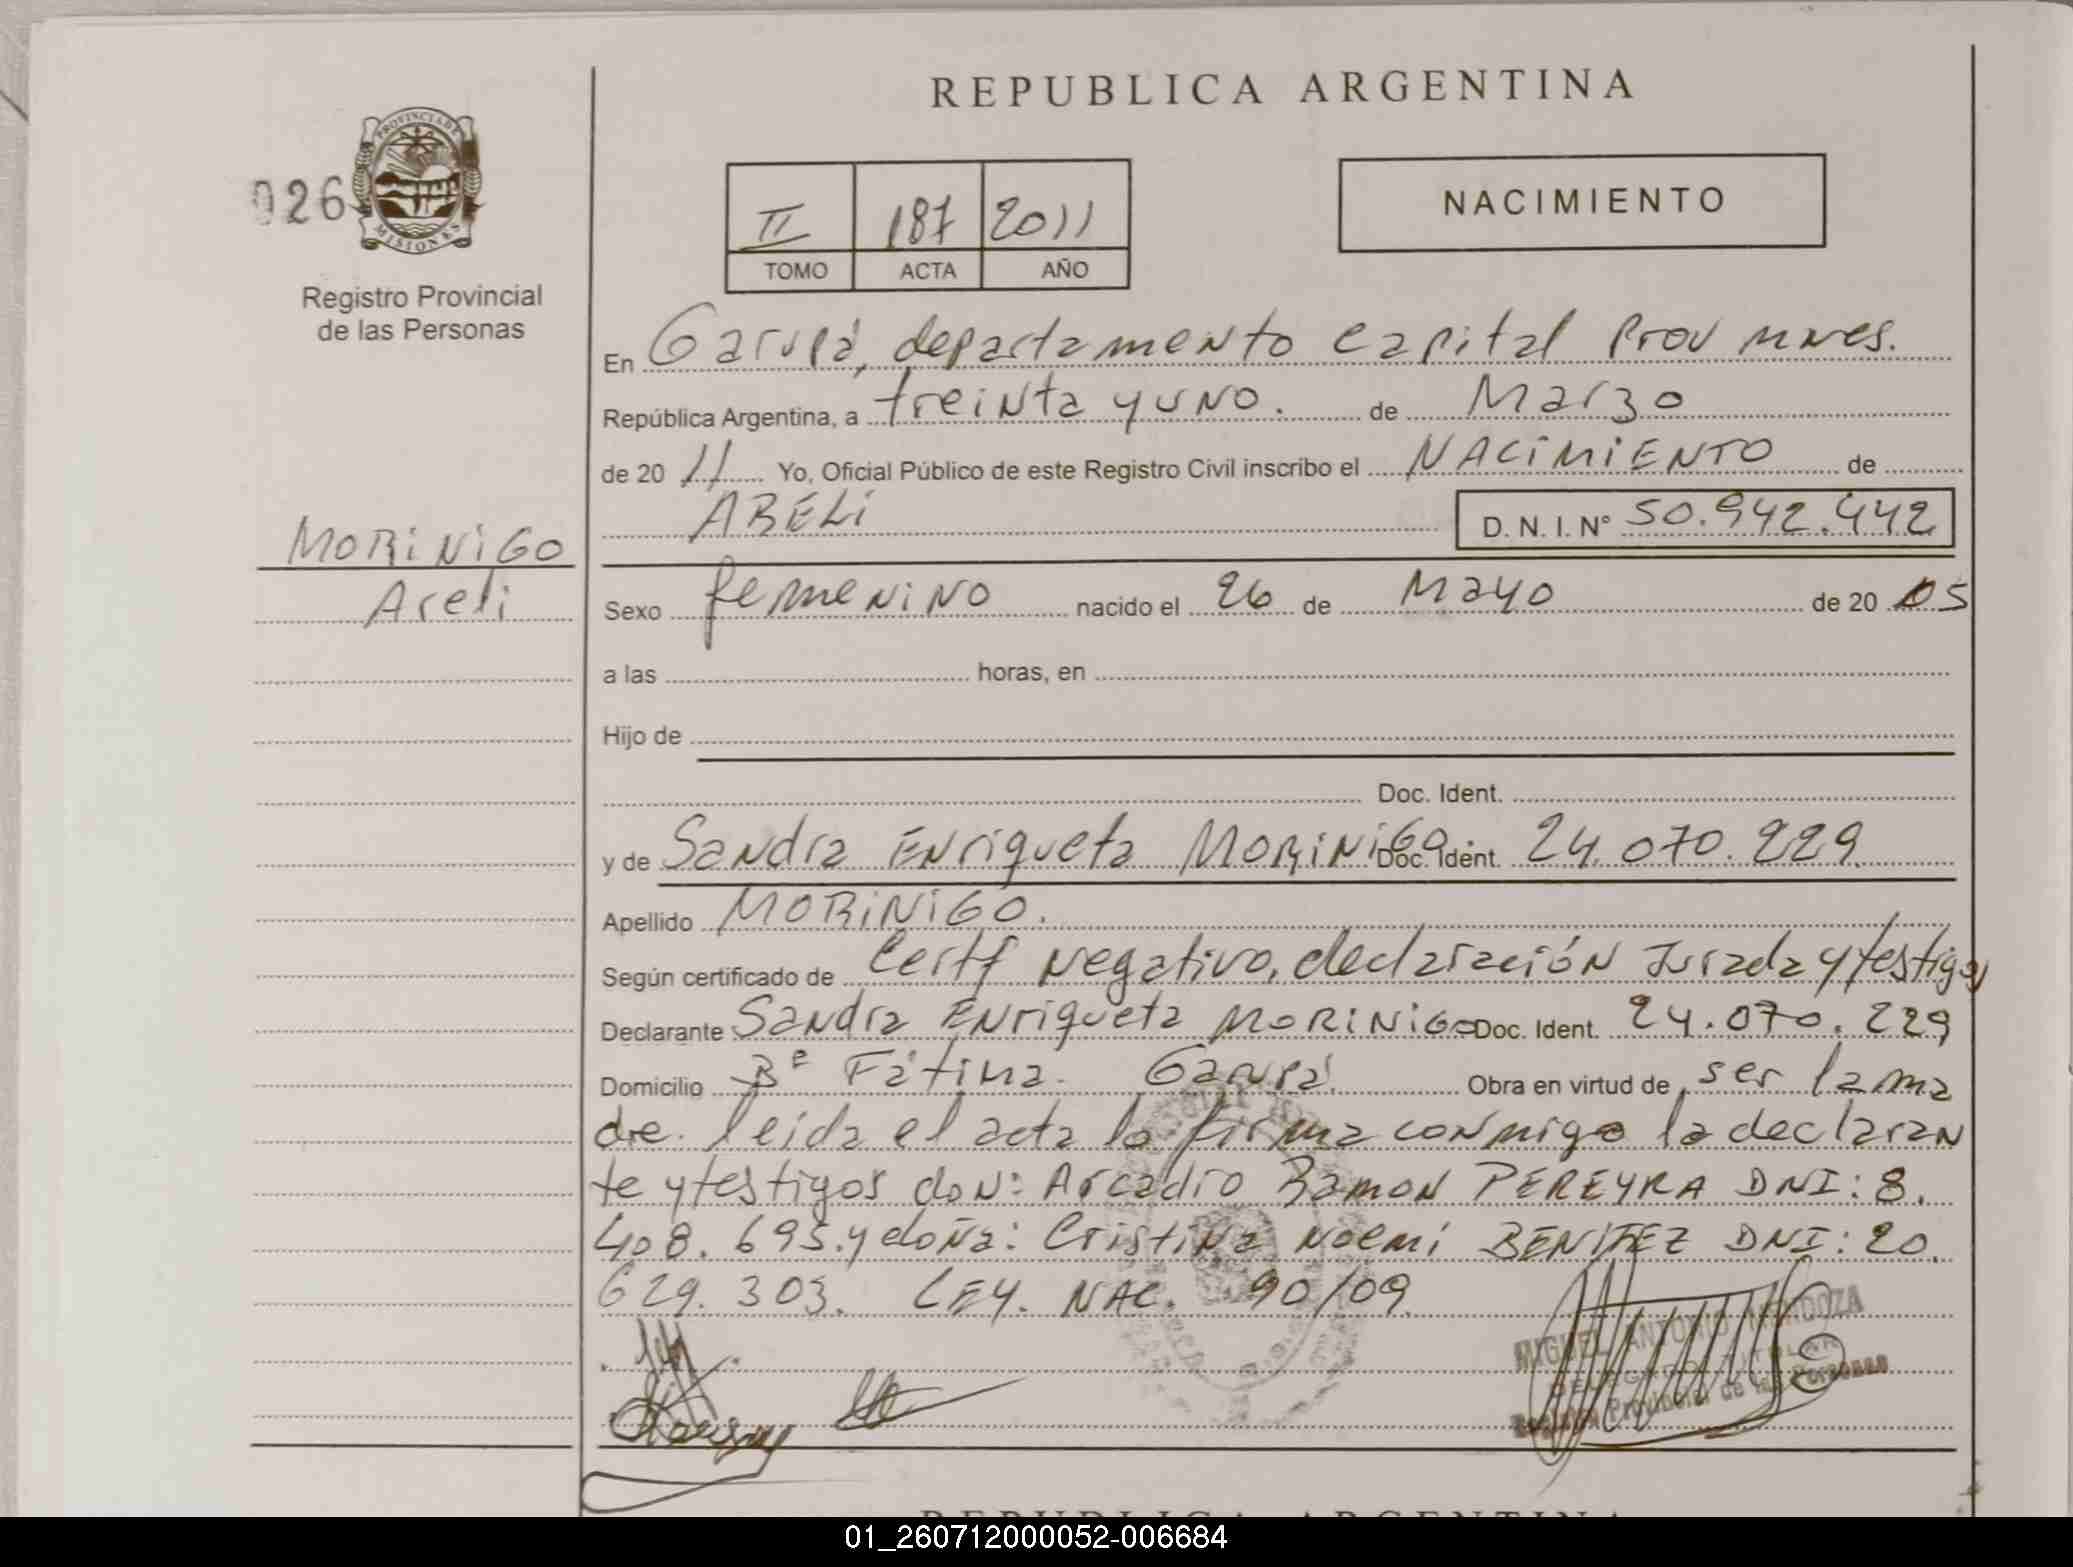 REPUBLICA ARGENTINA
026
PROVINCIA DE MISIONES
Registro Provincial
de las Personas
II 187 2011
TOMO ACTA AÑO
NACIMIENTO
En Garupá, departamento capital Prov mnes.
República Argentina, a treinta y uno. de Marzo
de 20 11 Yo, Oficial Público de este Registro Civil inscribo el NACIMIENTO de
ARELI D. N. I. N° 50.942.442
MORINIGO
Areli
Sexo femenino nacido el 26 de Mayo de 20 05
a las horas, en
Hijo de
Doc. Ident.
y de Sandra Enriqueta MORINIGO Doc. Ident. 24.070.229
Apellido MORINIGO.
Según certificado de Certf negativo, declaración Jurada y testigos
Declarante Sandra Enriqueta MORINIGO Doc. Ident. 24.070.229
Domicilio Bº Fátima. Garupá. Obra en virtud de ser la ma
dre. leída el acta la firma conmigo la declaran
te y testigos don: Arcadio Ramon PEREYRA DNI: 8.
408.695. y doña: Cristina Noemí BENITEZ DNI: 20.
629.303. LEY. NAC. 90/09.
MIGUEL ANTONIO MENDOZA
DELEGADO TITULAR
Registro Provincial de las Personas
REPUBLICA ARGENTINA
01_260712000052-006684